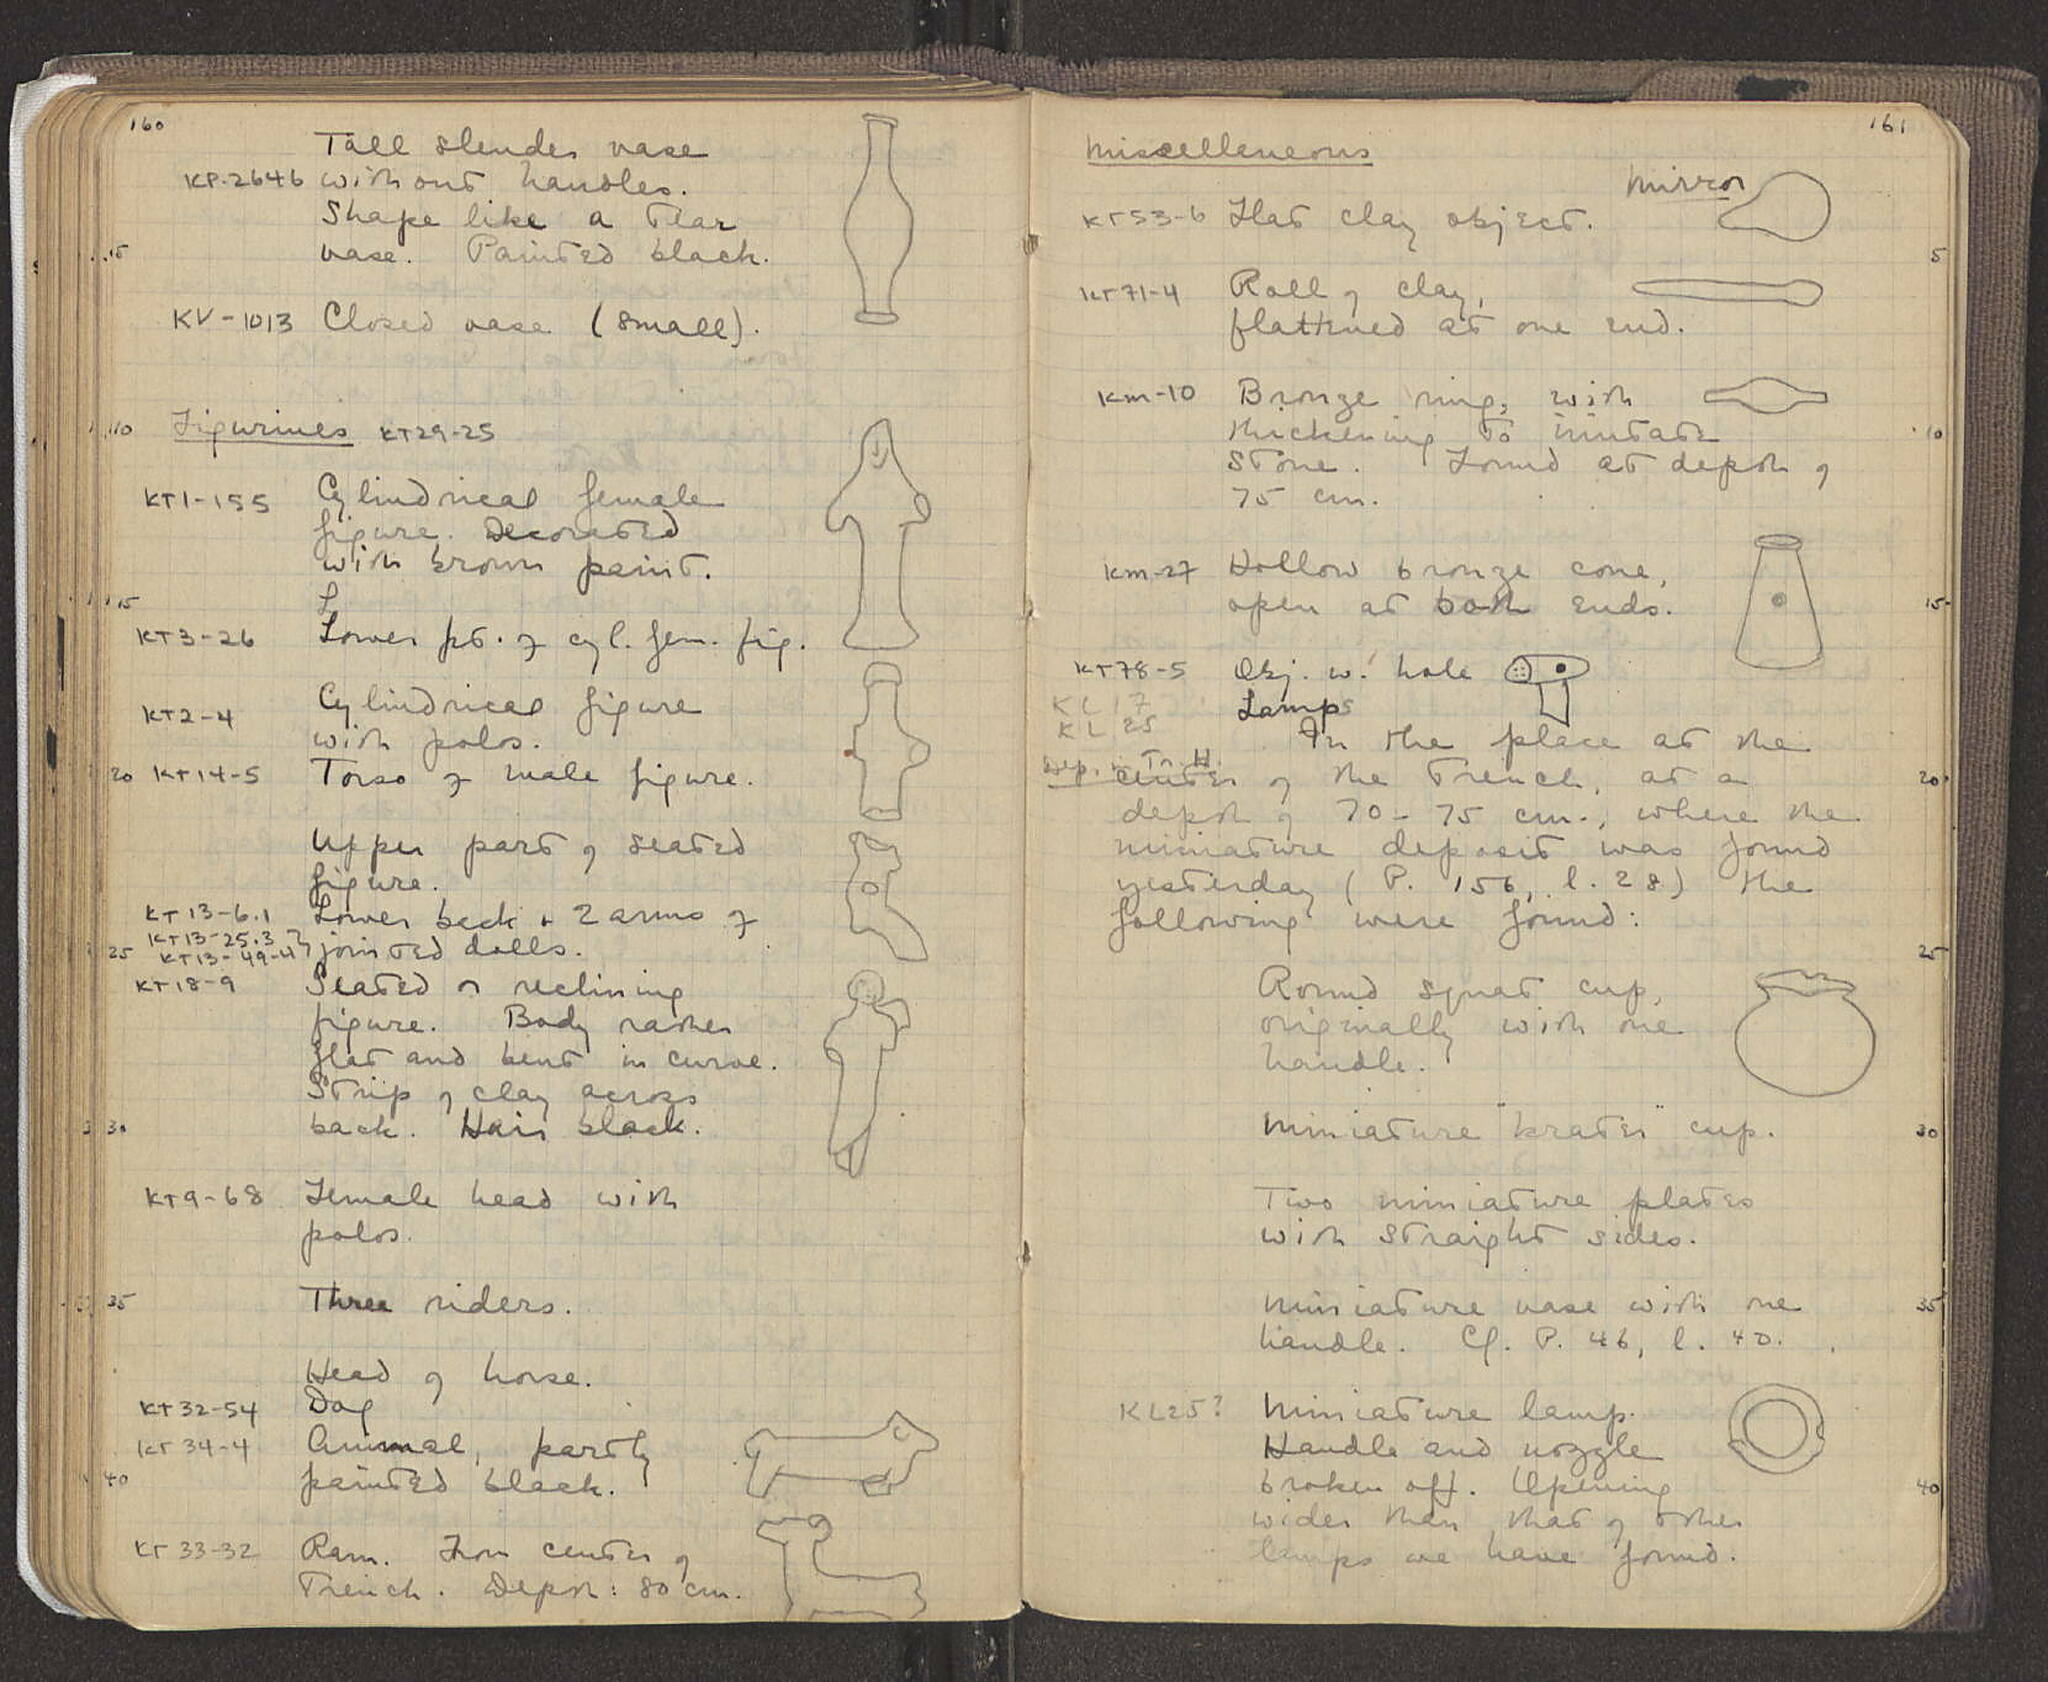 160
Tall slender vase
KP-2646 without handles.
Shape like a tear
5
vase. Painted black.
KV-1013 Closed vase (small).
10
Figurines KT29-25
KT1-155 Cylindrical female
figure. Decorated
with brown paint.
15
L
KT3-26 Lower pt. of cyl. fem. fig.
Cylindrical figure
KT2-4
with polos.
20 KT14-5 Torso of male figure.
Upper part of seated
figure.
KT13-6.1 Lower back + 2 arms of
KT13-25.3
25 KT13-49-4 } jointed dolls.
KT18-9 Seated or reclining
figure. Body rather
flat and bent in curve.
Strip of clay across
30 back. Hair black.
KT9-68 Female head with
polos.
35 Three riders.
Head of horse.
KT32-54 Dog
KT34-4 Animal, partly
40 painted black.
KT33-32 Ram. From center of
Trench. Depth: 80 cm.
161
Miscellaneous
Mirror
KT53-6 Flat clay object.
5
KT71-4 Roll of clay,
flattened at one end.
KM-10 Bronze ring, with
thickening to imitate 10
stone. Found at depth of
75 cm.
KM-27 Hollow bronze cone,
open at both ends. 15
KT78-5 Obj. w. hole
KL17 Lamps
KL25
In the place at the
Dep. in Tr. H.
center of the trench, at a 20
depth of 70-75 cm., where the
miniature deposit was found
yesterday (P. 156, l. 28) the
following were found:
25
Round squat cup,
originally with one
handle.
Miniature "krater" cup. 30
Two miniature plates
with straight sides.
Miniature vase with one 35
handle. Cf. P. 46, l. 40.
KL25? Miniature lamp.
Handle and nozzle
broken off. Opening 40
wider than that of other
lamps we have found.